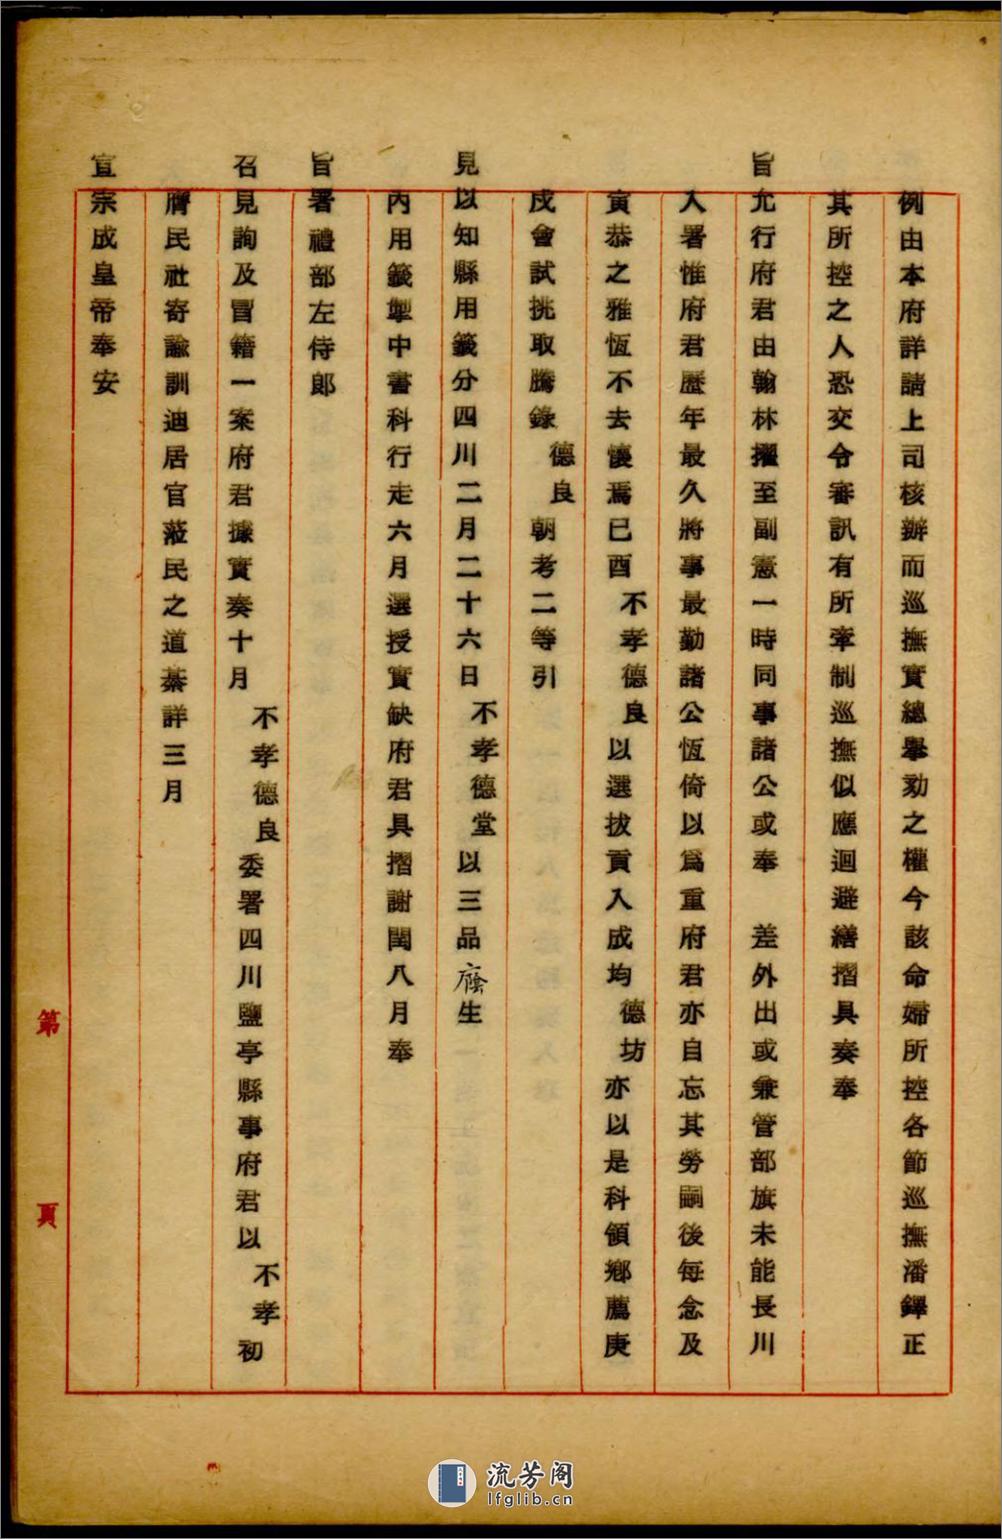 例由本府詳請上司核辦而巡撫實總舉劾之權今該命婦所控各節巡撫潘鐸正
其所控之人恐交令審訊有所牽制巡撫似應迴避繕摺具奏奉
旨允行府君由翰林擢至副憲一時同事諸公或奉　差外出或兼管部旗未能長川
入署惟府君歷年最久將事最勤諸公恆倚以為重府君亦自忘其勞嗣後每念及
寅恭之雅恆不去懷焉已酉不孝德良以選拔貢入成均德坊亦以是科領鄉薦庚
戌會試挑取謄錄德良朝考二等引
見以知縣用籤分四川二月二十六日不孝德堂以三品廕生
內用籤掣中書科行走六月選授實缺府君具摺謝閏八月奉
旨署禮部左侍郎
召見詢及冒籍一案府君據實奏十月不孝德良委署四川鹽亭縣事府君以不孝初
膺民社寄諭訓迪居官蒞民之道綦詳三月
宣宗成皇帝奉安
第　頁
流芳阁
lfglib.cn